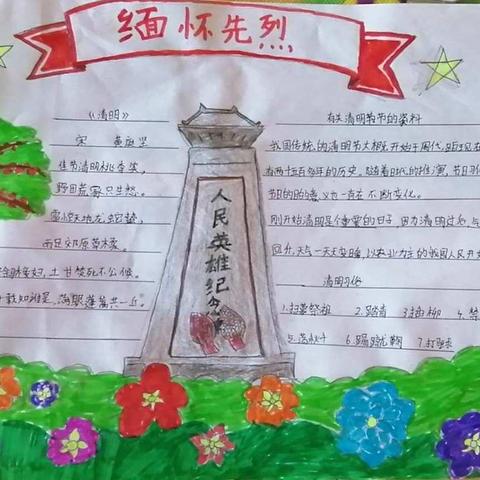 缅怀先烈
《清明》
宋 黄庭坚
佳节清明桃李笑，
野田荒冢只生愁。
雷惊天地龙蛇蛰，
雨足郊原草木柔。
士甘焚死不公候。
载知谁是，满眼蓬蒿共一丘。
人民英雄纪念
有关清明节的资料
我国传统的清明节大概开始于周代，距现在
有两千五百多年的历史。随着时代的推演，节日习
节日的意义也一直在不断变化。
刚开始清明是个重要的日子，因为清明过后，
回升，天气一天天变暖，以农业为主的我国人民开
清明习俗
1.扫墓祭祖 2.踏青 3.插柳 4.
5.荡秋千 6.蹴鞠 7.打球